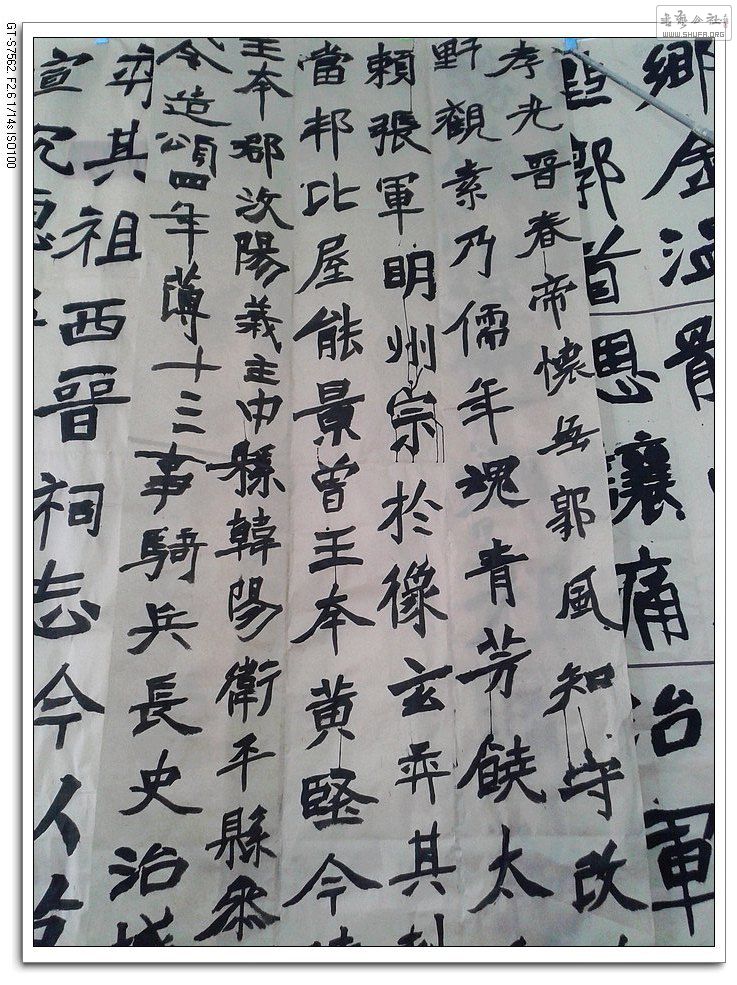 鄉金温骨
郭首思讓痛治軍
孝光晉春帝懷岳郭風知守改
野觀素乃儒年瑰青芳饒太
賴張軍明州宗於緣玄弈其
當邦比屋能景曾王本黄堅今
王本郡汝陽義主中縣韓陽衛平縣參
令造頌四年薄十三事騎兵長史治城
弈其祖西晉祠志今人
宣沉德
書藝公社
WWW.SHUFA.ORG
GT-S7562 F2.6 1/14s ISO100